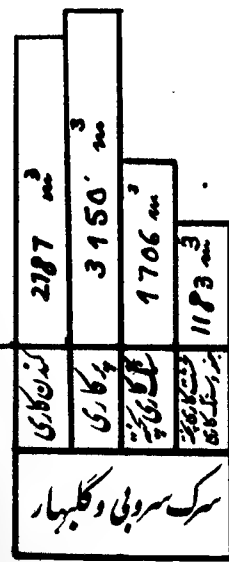 2787 m³
3150 m³
1706 m³
1183 m³
کندن کاری
پر کاری
سنگ کاری پخته
سرک سروبی و گلبهار